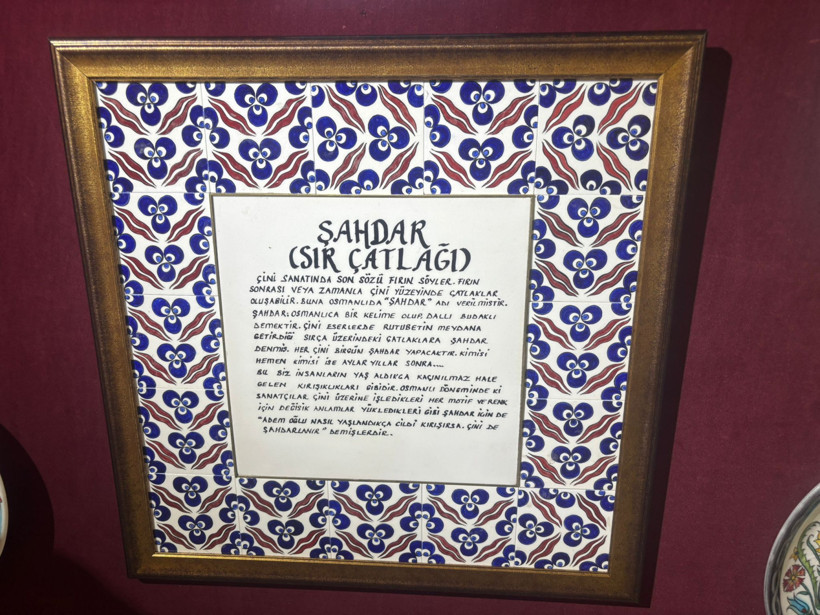 ŞAHDAR
(SIR ÇATLAĞI)
ÇİNİ SANATINDA SON SÖZÜ FIRIN SÖYLER. FIRIN
SONRASI VEYA ZAMANLA ÇİNİ YÜZEYİNDE ÇATLAKLAR
OLUŞABİLİR. BUNA OSMANLIDA "ŞAHDAR" ADI VERİLMİŞTİR.
ŞAHDAR; OSMANLICA BİR KELİME OLUP, DALLI BUDAKLI
DEMEKTİR. ÇİNİ ESERLERDE RUTUBETİN MEYDANA
GETİRDİĞİ SIRÇA ÜZERİNDEKİ ÇATLAKLARA ŞAHDAR
DENMİŞ. HER ÇİNİ BİRGÜN ŞAHDAR YAPACAKTIR. KİMİSİ
HEMEN KİMİSİ İSE AYLAR YILLAR SONRA....
BU BİZ İNSANLARIN YAŞ ALDIKCA KAÇINILMAZ HALE
GELEN KIRIŞIKLIKLARI GİBİDİR. OSMANLI DÖNEMİNDE Kİ
SANATÇILAR ÇİNİ ÜZERİNE İŞLEDİKLERİ HER MOTİF VE RENK
İÇİN DEĞİŞİK ANLAMLAR YÜKLEDİKLERİ GİBİ ŞAHDAR İÇİN DE
"ADEM OĞLU NASIL YAŞLANDIKÇA CİLDİ KIRIŞIRSA, ÇİNİ DE
ŞAHDARLANIR" DEMİŞLERDİR.